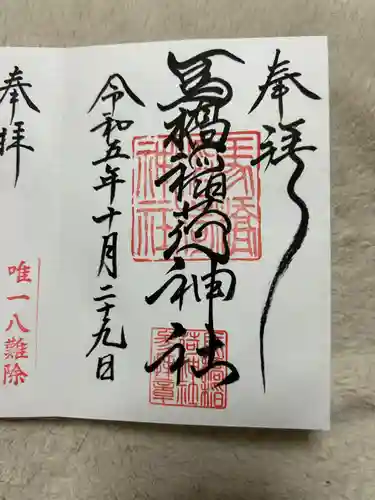 奉拝
馬橋稲荷神社
令和五年十月二十九日
馬橋
神社
奉拝
唯一八難除